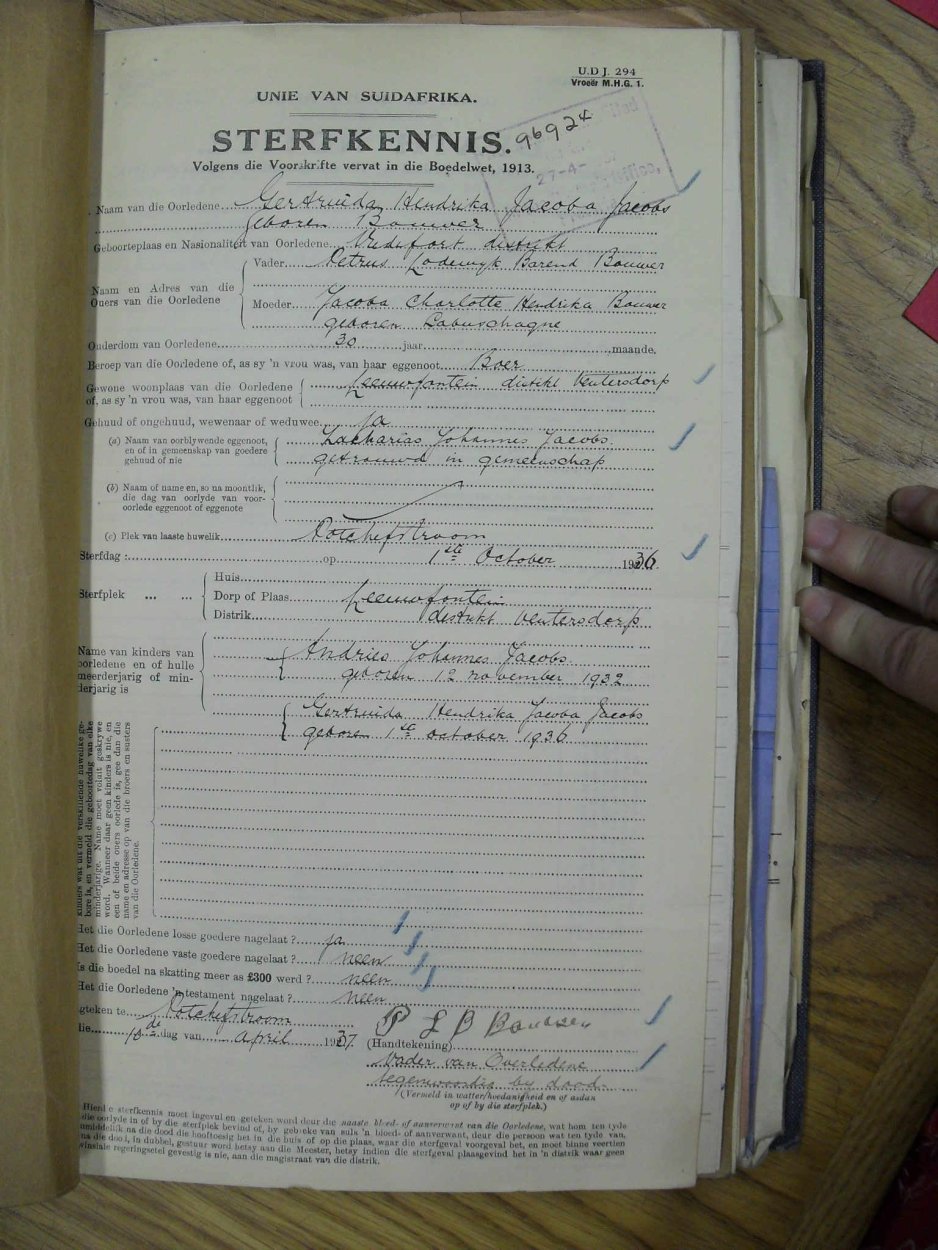 U.D J. 294
Vroeër M.H.G. 1.
UNIE VAN SUIDAFRIKA.
STERFKENNIS.
96924
27-4-
Volgens die Voorskrifte vervat in die Boedelwet, 1913.
Naam van die Oorledene Gertruida Hendrika Jacoba Jacobs
geboren Bouwer
Geboorteplaas en Nasionaliteit van Oorledene Vredefort distrikt
Naam en Adres van die Ouers van die Oorledene
Vader Petrus Lodewyk Barend Bouwer
Moeder Jacoba Charlotte Hendrika Bouwer
geboren Labuschagne
Ouderdom van Oorledene 30 jaar maande.
Beroep van die Oorledene of, as sy 'n vrou was, van haar eggenoot Boer
Gewone woonplaas van die Oorledene of, as sy 'n vrou was, van haar eggenoot Leeuwfontein distikt Ventersdorp
Gehuud of ongehuud, wewenaar of weduwee ja
(a) Naam van oorblywende eggenoot, en of in gemeenskap van goedere gehuud of nie
Zacharias Johannes Jacobs
getrouwd in gemeenschap
(b) Naam of name en, so na moontlik, die dag van oorlyde van vooroorlede eggenoot of eggenote
(c) Plek van laaste huwelik Potchefstroom
Sterfdag : op 1ste October 1936
Sterfplek ... ...
Huis
Dorp of Plaas Leeuwfontein
Distrik distrikt Ventersdorp
Name van kinders van
oorledene en of hulle
meerderjarig of min-
derjarig is
Andries Johannes Jacobs
geboren 12 november 1932
Gertruida Hendrika Jacoba Jacobs
geboren 1ste october 1936
kinders wat uit die verskillende huwelike ge-
bore is, en vermeld die geboortedag van elke
minderjarige. Name moet voluit geskrywe
word. Wanneer daar geen kinders is nie, en
een of beide ouers oorlede is, gee dan die
name en adresse op van die broers en susters
van die Oorledene.
Het die Oorledene losse goedere nagelaat ? ja
Het die Oorledene vaste goedere nagelaat ? neen
Is die boedel na skatting meer as £300 werd ? neen
Het die Oorledene 'n testament nagelaat ? neen
gteken te Potchefstroom
die 10de dag van April 1937.
P L B Bouwer
(Handtekening)
Vader van Overledene
tegenwoordig by dood.
(Vermeld in watter hoedanigheid en of asdan
op of by die sterfplek.)
Hierdie sterfkennis moet ingevul en geteken word deur die naaste bloed- of aanverwant van die Oorledene, wat hom ten tyde
die oorlyde in of by die sterfplek bevind of, by gebreke van sulk 'n bloed- of aanverwant, deur die persoon wat ten tyde van,
nmiddellik na die dood die hooftoesig het in die huis of op die plaas, waar die sterfgeval voorgeval het, en moet binne veertien
na die dood, in dubbel, gestuur word hetsy aan die Meester, hetsy indien die sterfgeval plaasgevind het in 'n distrik waar geen
vinsiale regeringsetel gevestig is nie, aan die magistraat van die distrik.